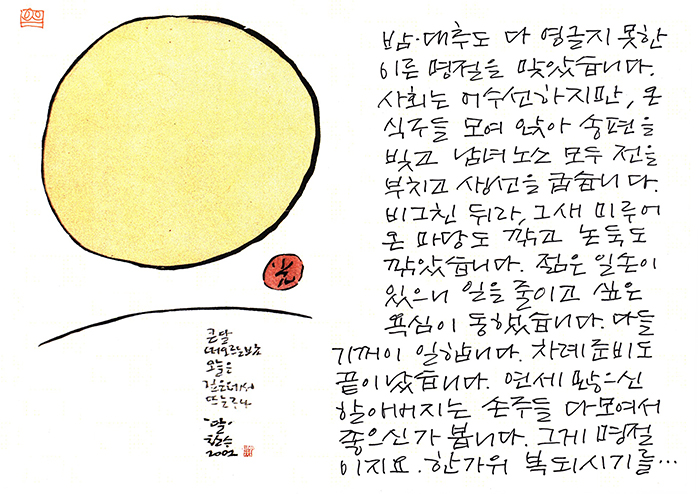 큰달
오늘은
깊은데서
뜨는구나
'달'
철수
2002
밤·대추도 다 영글지 못한
이른 명절을 맞았습니다.
사회는 어수선하지만, 온
식구들 모여 앉아 송편을
빚고 남녀노소 모두 전을
부치고 생선을 굽습니다.
비그친 뒤라, 그새 미루어
온 마당도 깎고 논둑도
깎았습니다. 젊은 일손이
있으니 일을 줄이고 싶은
욕심이 동했습니다. 다들
기꺼이 일합니다. 차례준비도
끝이 났습니다. 연세 많으신
할아버지는 손주들 다모여서
좋으신가 봅니다. 그게 명절
이지요. 한가위 복되시기를…